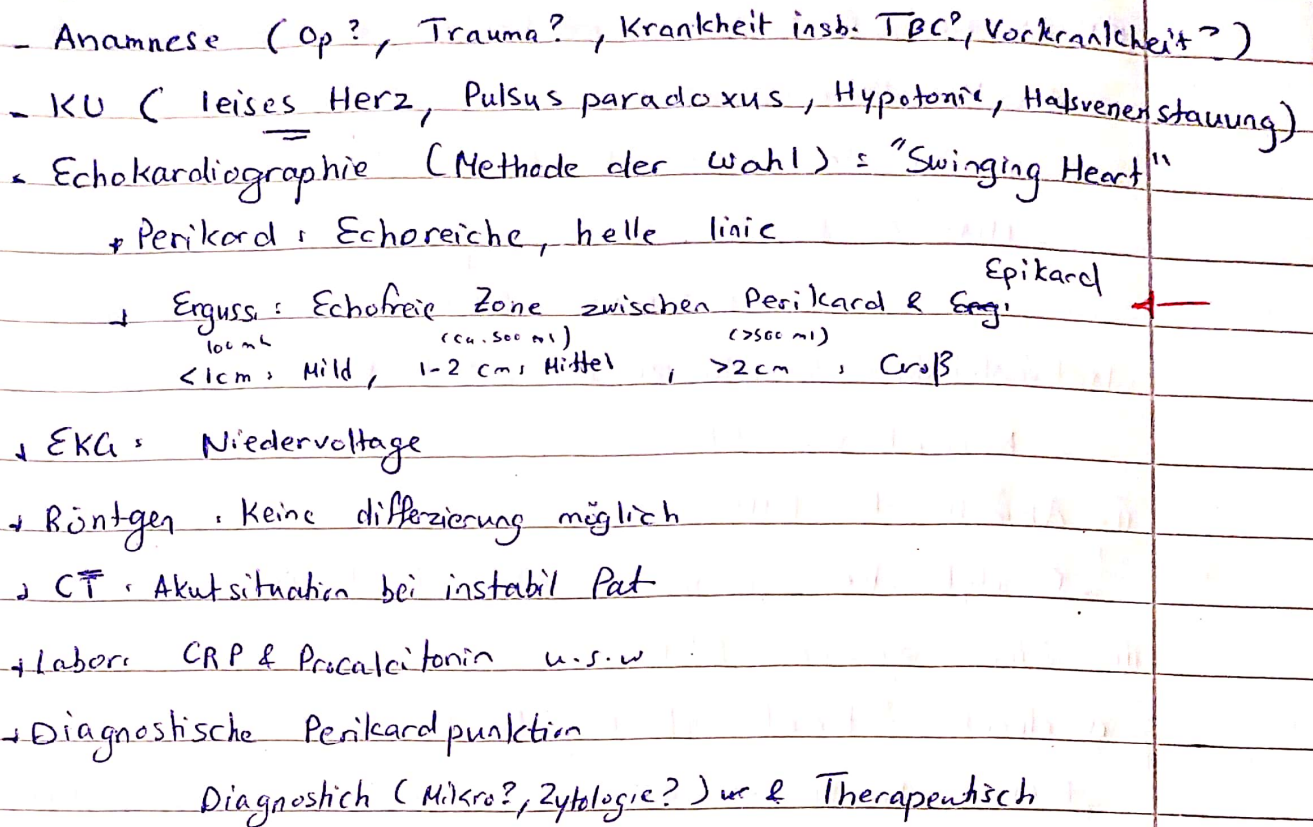 - Anamnese (Op?, Trauma?, Krankheit insb. TBC?, Vorkrankheit?)
- KU ( leises Herz, Pulsus paradoxus, Hypotonie, Halsvenenstauung)
- Echokardiographie (Methode der Wahl) : "Swinging Heart"
+ Perikard : Echoreiche, helle linie
Epikard
+ Erguss : Echofreie Zone zwischen Perikard &
100 ml (ca. 500 ml) (>500 ml)
<1cm : Mild, 1-2 cm : Mittel, >2cm : Groß
+ EKG : Niedervoltage
+ Röntgen : Keine differzierung möglich
+ CT : Akutsituation bei instabil Pat
+ Labor : CRP & Procalcitonin u.s.w
+ Diagnostische Perikardpunktion
Diagnostich (Mikro?, Zytologie?) & Therapeutisch